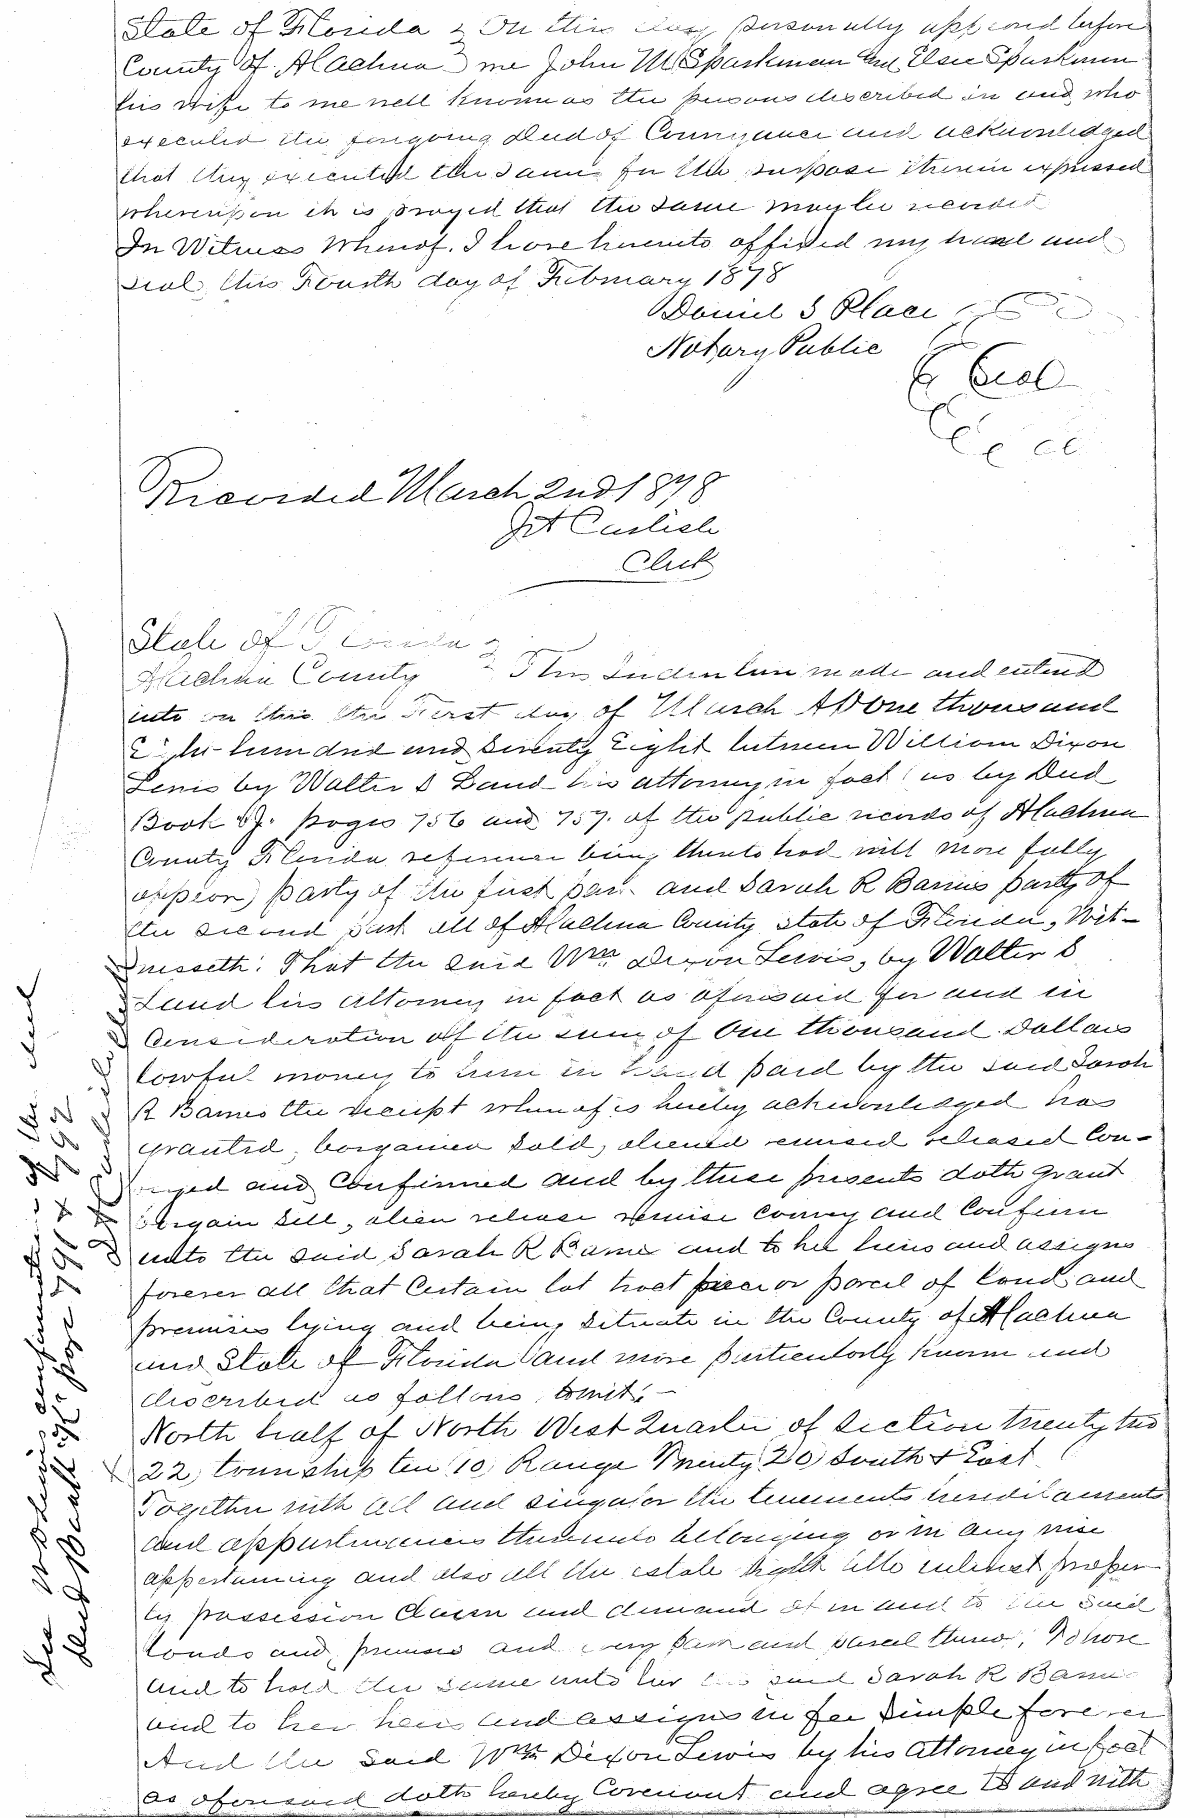 State of Florida } On this day personally appeared before
County of Alachua } me John M Sparkman and Elsie Sparkman
his wife to me well known as the persons described in and who
executed the foregoing Deed of Conveyance and acknowledged
that they executed the same for the purpose therein expressed
whereupon it is prayed that the same may be recorded
In Witness Whereof. I have hereunto affixed my hand and
seal this Fourth day of February 1878
Daniel S Place
Notary Public
Seal
Recorded March 2nd 1878
J A Carlisle
Clerk
State of Florida }
Alachua County } This Indenture made and entered
into on this the First day of March AD One thousand
Eight hundred and Seventy Eight between William Dixon
Lewis by Walter S Land his attorney in fact (as by Deed
Book J. pages 756 and 757. of the public records of Alachua
County Florida reference being thereto had will more fully
appear) party of the first part and Sarah R Barnes party of
the second part all of Alachua County State of Florida, Wit-
nesseth: That the said Wm Dixon Lewis, by Walter S
Land his attorney in fact as aforesaid for and in
Consideration of the sum of One thousand Dollars
lawful money to him in hand paid by the said Sarah
R Barnes the receipt whereof is hereby acknowledged has
granted, bargained sold, aliened remised released Con-
veyed and Confirmed and by these presents doth grant
bargain sell, alien release remise convey and Confirm
unto the said Sarah R Barnes and to her heirs and assigns
forever all that Certain lot tract piece or parcel of land and
premises lying and being situate in the County of Alachua
and State of Florida and more particularly known and
described as follows, towit; -
North half of North West Quarter of Section twenty two
22) township ten 10) Range Twenty 20) South & East
Together with all and singular the tenements hereditaments
and appurtenances thereunto belonging or in any wise
appertaining and also all the estate right title interest proper
ty possession claim and demand of in and to the said
lands and premises and every part and parcel thereof, To have
and to hold the same unto her the said Sarah R Barnes
and to her heirs and assigns in fee simple forever
And the said Wm Dixon Lewis by his Attorney in fact
as aforesaid doth hereby Covenant and agree to and with
See W D Lewis confirmation of the deed
Deed Book "K" page 791 & 792
J A Carlisle Clerk